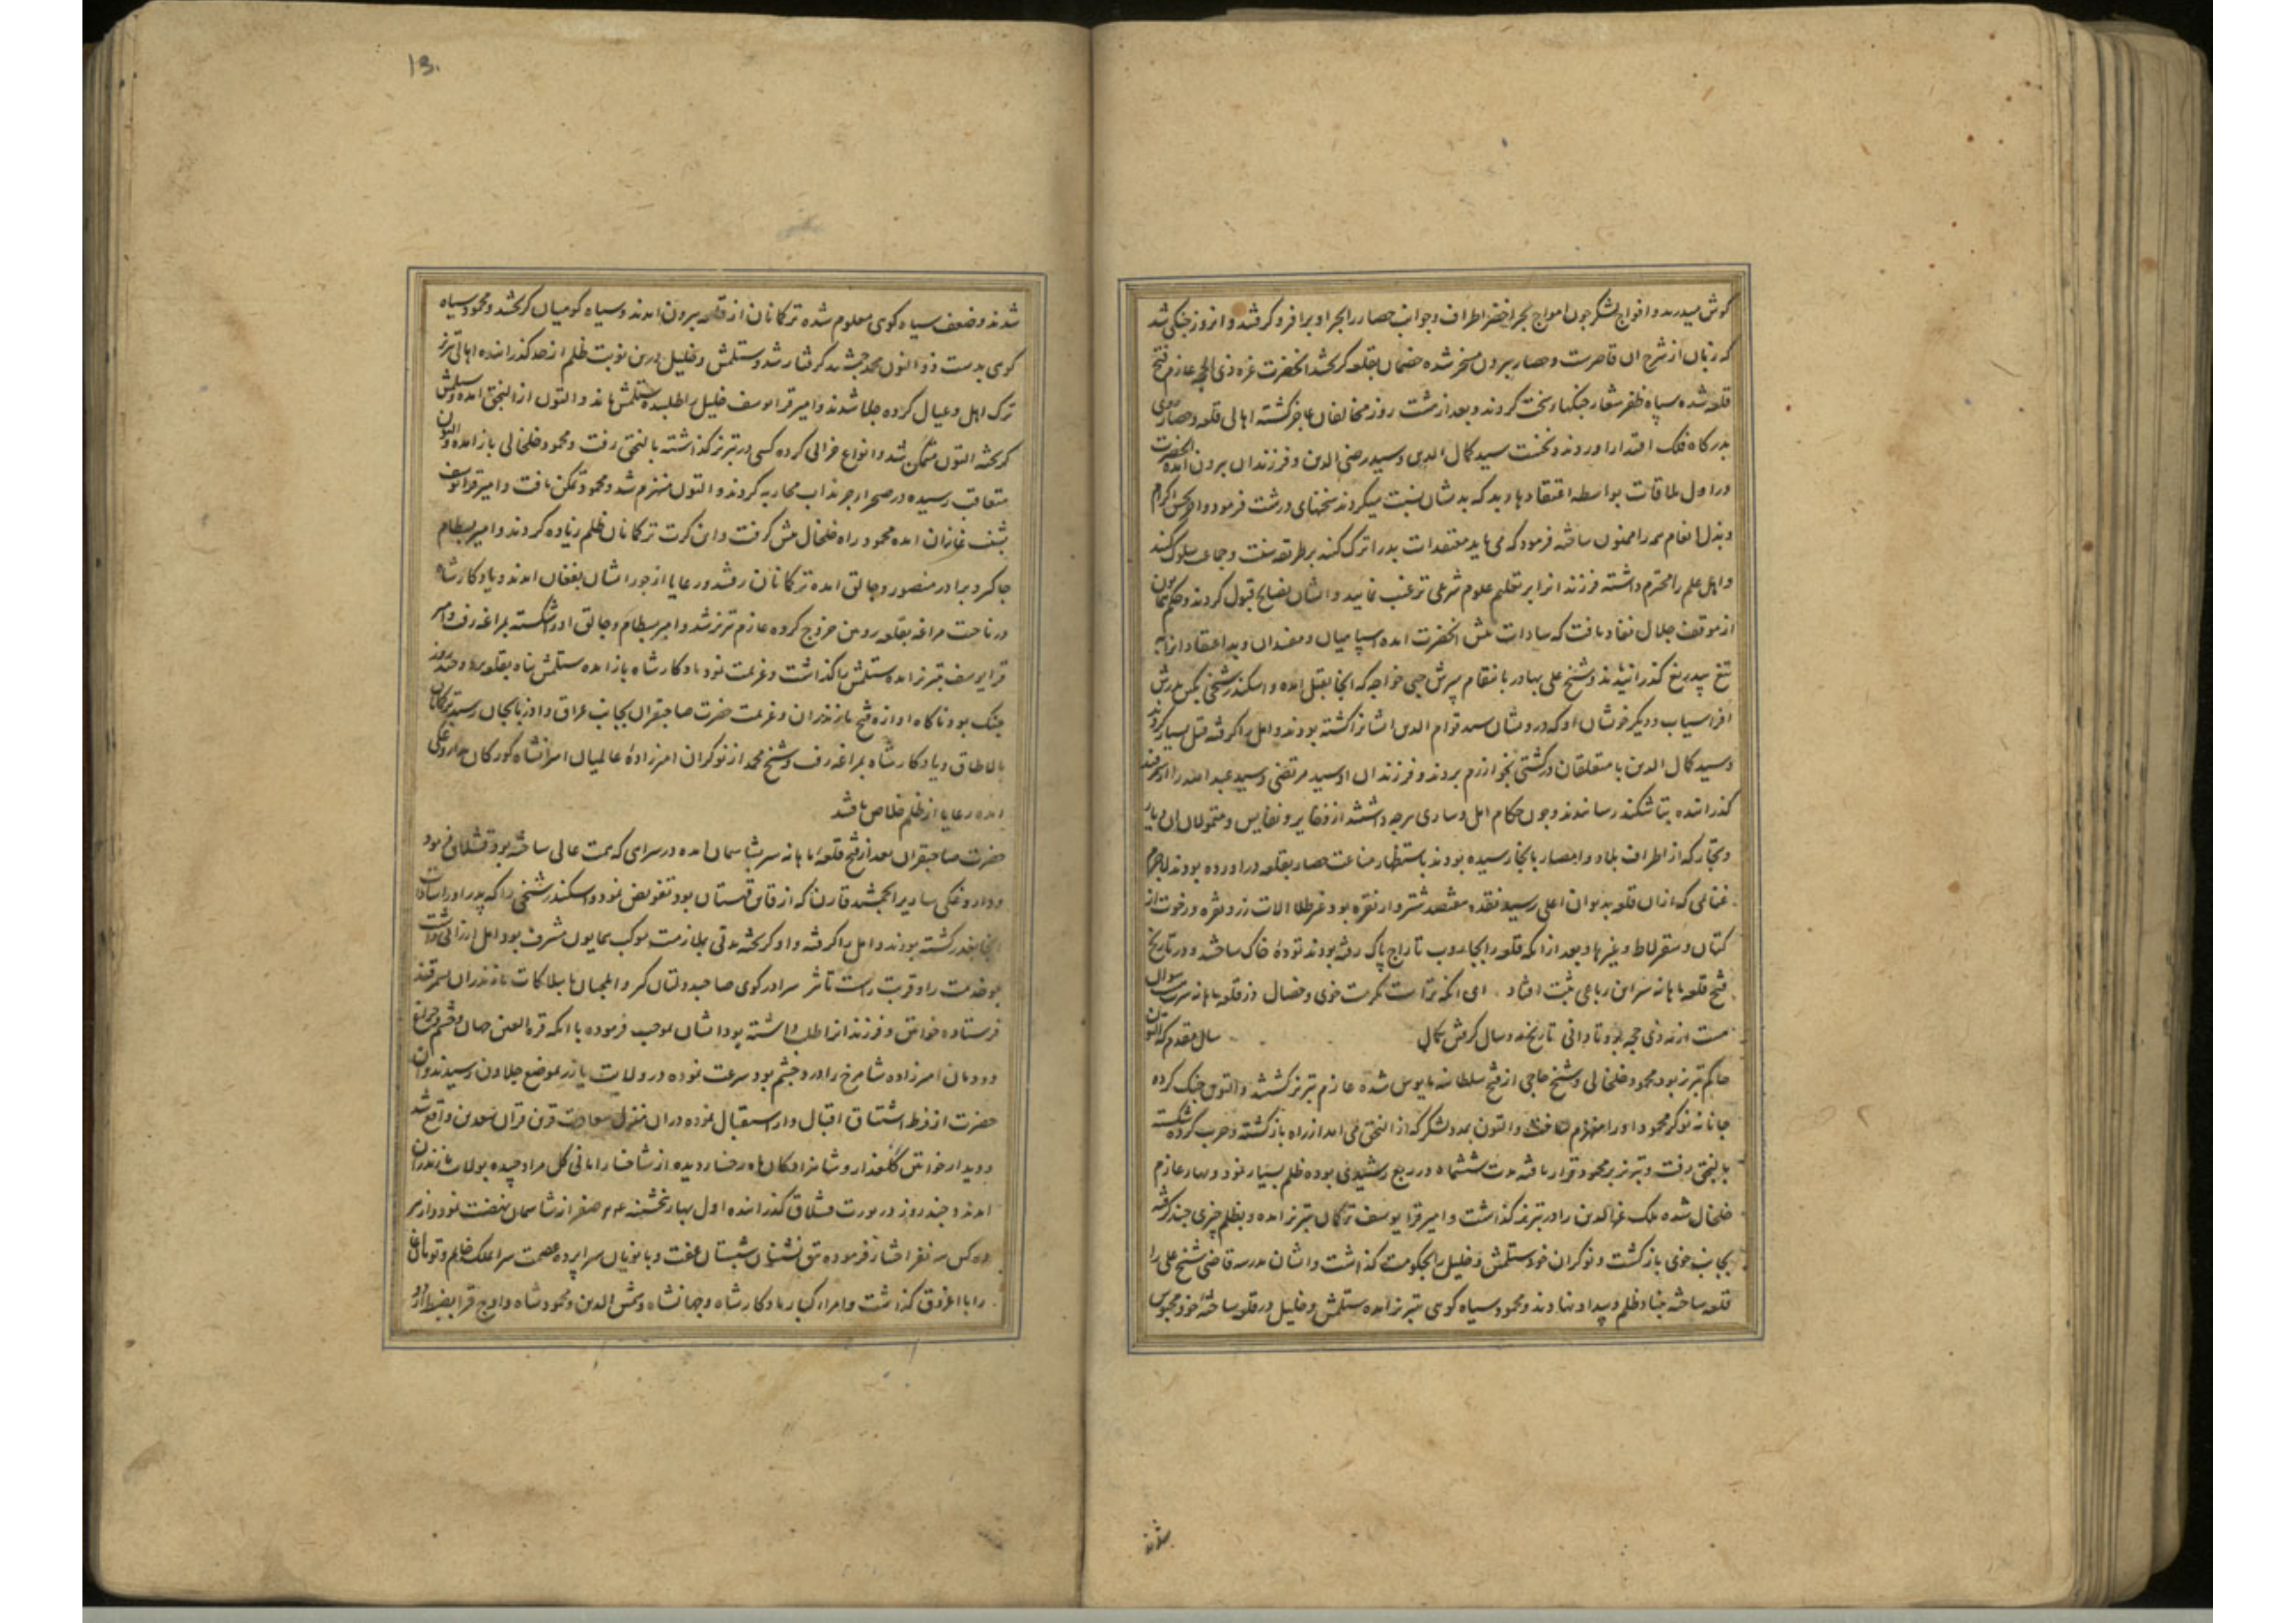 گوش میدرید و افواج لشکر چون امواج بحر اخضر اطراف و جوانب حصار را بجر او برا فرو گرفتند و انروز جنکی شد
که زبان از شرح ان قاصرست و حصار بیرون مسخر شده خصمان بقلعه کریختند انحضرت غره ذی الحجه عازم فتح
قلعه شده سپاه ظفر شعار جنکهاء سخت کردند و بعد از هشت روز مخالفان عاجز کشته اهالی قلعه و حصار روی
بدرکاه فلک اقتدار اوردند و نخست سید کمال الدین و سید رضی الدین و فرزندان بیرون امده انحضرت
در اول ملاقات بواسطه اعتقادهاء بد که بدیشان نسبت میکردند سخنهای درشت فرمود و اکرام
و بذل انعام همه را ممنون ساخته فرمود که می باید معتقدات بد را ترک کنند بر طریقه سنت و جماعت سلوک کنند
و اهل علم را محترم داشته فرزندانرا بر تعلیم علوم شرعی ترغیب نمایید و ایشان نصایح قبول کردند و حکم همایون
از موقف جلال نفاد یافت که سادات پیش انحضرت امده سپاهیان و مفسدان و بد اعتقادانرا
تیغ بیدریغ کذرانیدند و شیخ علی بهادر بانتقام پسرش خواجه که انجا بقتل امده و اسکندر شیخی بکین پدرش
افراسیاب و دیکر خویشان او که درویشان سید قوام الدین ایشانرا کشته بودند و امل را کرفته قتل بسیار کردند
و سید کمال الدین با متعلقان در کشتی بخوارزم بردند و فرزندان او سید مرتضی و سید عبد الله را از سمرقند
کذرانده بتاشکند رسانیدند و چون حکام امل و ساری هرچه داشتند از ذخایر و نفایس و متمولان ان دیار
و تجار که از اطراف بلاد و امصار بانجا رسیده بودند باستظهار مناعت حصار بقلعه در اورده بودند لاجرم
غنائمی که ازان قلعه بدیوان اعلی رسید نقده هفتصد شتروار نقره بود غیر طلا الات زر و نقره و رخوت از
کتان و سقرلاط و غیرها و بعد ازانکه قلعه را بجاروب تاراج پاک رفته بودند توده خاک ساختند و در تاریخ
فتح قلعه ماهانه سر این رباعی ثبت افتاد ای انکه تراست مکرمت خوی و خصال وز قلعه ماهانه سرت سوال
هست از مه ذی حجه بود تا دانی تاریخ مه و سال کریش کمال سال مقدم که التون
حاکم تبریز بود محمود خلخالی و شیخ حاجی از فتح سلطانیه مایوس شده عازم تبریز کشتند و التون جنک کرده
نوکر محمود او را منهزم ساخت و التون بمدد لشکر که از النجق می امد از راه باز کشته و حرب کرده شکسته
بالنجق رفت و تبریز بر محمود قرار یافته مدت ششماه در ربع رشیدی بوده ظلم بسیار نمود و بهار عازم
خلخال شده ملک عز الدین را در تبریز کذاشت و امیر قرا یوسف ترکمان تبریز امده و بظلم چیزی چند کرفته
بجانب خوی باز کشت و نوکران خود ستلمش و خلیل را بحکومت کذاشت و ایشان مدرسه قاضی شیخ علی را
قلعه ساخته بنیاد ظلم و بیداد نهادند و محمود سیاه کوهی تبریز امده ستلمش و خلیل در قلعه ساخته خود محبوس
شدند
13.
شدند و ضعف سیاه کوهی معلوم شده ترکمانان از قلعه بیرون امدند و سیاه کوهیان کریختند و محمود سیاه
کوهی بدست ذو النون محمد جمشید کرفتار شد و ستلمش و خلیل درین نوبت ظلم از حد کذرانده اهالی تبریز
ترک اهل و عیال کرده جلا شدند و امیر قرا یوسف خلیل را طلبیده ستلمش ماند و التون از النجق امده و ستلمش
کریخته التون متمکن شد و انواع خرابی کرده کسی در تبریز کذاشته بالنجق رفت و محمود خلخالی باز امده و التون
متعاقب رسیده در صحراء چرنداب محاربه کردند و التون منهزم شد و محمود تمکن یافت و امیر قرا یوسف
بشنب غازان امده محمود راه خلخال پیش کرفت و این کرت ترکمانان ظلم زیاده کردند و امیر بسطام
جاکیر و برادر منصور و چالق امده ترکمانان رفتند و رعایا از جور ایشان بفغان امدند و یادکار شاه
در ناحیت مراغه بقلعه رویین خروج کرده عازم تبریز شد و امیر بسطام و چالق او را شکسته بمراغه رفت و امیر
قرا یوسف تبریز امده ستلمش را کذاشت و عزیمت نمود یادکار شاه باز امده ستلمش پناه بقلعه برد و چند روز
جنک بود ناکاه اوازه فتح مازندران و عزیمت حضرت صاحبقران بجانب عراق و اذربایجان رسید ترکمانان
بالاطاق و یادکار شاه بمراغه رفت و شیخ محمد از نوکران امیرزاده عالمیان امیرانشاه کورکان بداروغکی
امده رعایا از ظلم خلاص یافتند
حضرت صاحبقران بعد از فتح قلعه ماهانه سر بشاسمان امده در سرای که همت عالی ساخته بود قشلاق فرمود
و داروغکی ساری را بجمشید قارن که از قاین قهستان بود تفویض نمود و اسکندر شیخی را که پدر او را سادات
انجا بغدر کشته بودند و امل را کرفته و او کریخته مدتی بملازمت موکب همایون مشرف بود امل ارزانی داشت
هر خدمت را و قربت راست تاثر سرا در کوی صاحبدولتان کیر و ایلچیان با بیلاکات مازندران سمرقند
فرستاده خواتین و فرزندانرا طلب داشته بود ایشان بموجب فرموده با انکه قره العین جهان و چشم و چراغ
دودمان امیرزاده شاهرخ را درد چشم بود سرعت نموده در ولایت یازر بموضع جلاون رسیدند و ان
حضرت از فرط اشتیاق اقبال وار استقبال نموده دران منزل سعادت قرین قران سعدین واقع شد
و دیدار خواتین کلعذار و شاهزادکان ماه رخسار دیده از شاخسار امانی کل مراد چیده بولایت مازندران
امدند و چند روز در یورت قشلاق کذرانده اول بهار پنجشنبه ۲۴ صفر از شاسمان نهضت نمود و از هر
ده کس سه نفر اختیار فرموده تتق نشینان شبستان عفت و بانویان سراپرده عصمت سرا ملک خانم و تومان اغا
را با اغروق کذاشت و امراء کبار یادکار شاه و جهانشاه و شمس الدین و محمود شاه و اوج قرا بضبط اردو